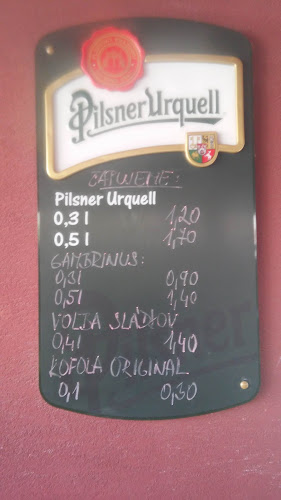 Pilsner Urquell
ČAPUJEME:
Pilsner Urquell
0,3 l 1,20
0,5 l 1,70
GAMBRINUS:
0,3l 0,90
0,5l 1,40
VOLBA SLÁDKOV
0,4l 1,40
KOFOLA ORIGINAL
0,1 0,30